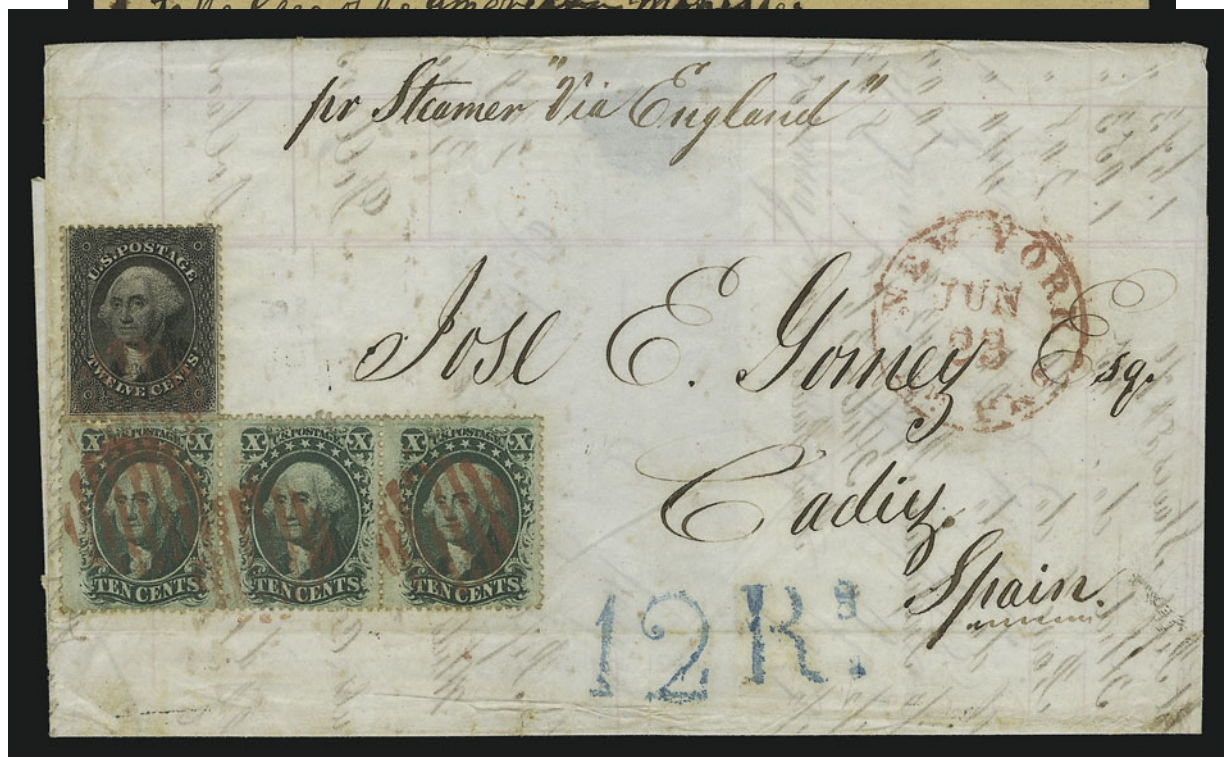 To the Care of the American Minister
pr Steamer "Via England"
U.S. POSTAGE
TWELVE CENTS
NEW YORK
JUN
Jose E. Gomez Esq.
Cadiz.
Spain.
X U.S. POSTAGE X
TEN CENTS
X U.S. POSTAGE X
TEN CENTS
X U.S. POSTAGE X
TEN CENTS
12 Rs.